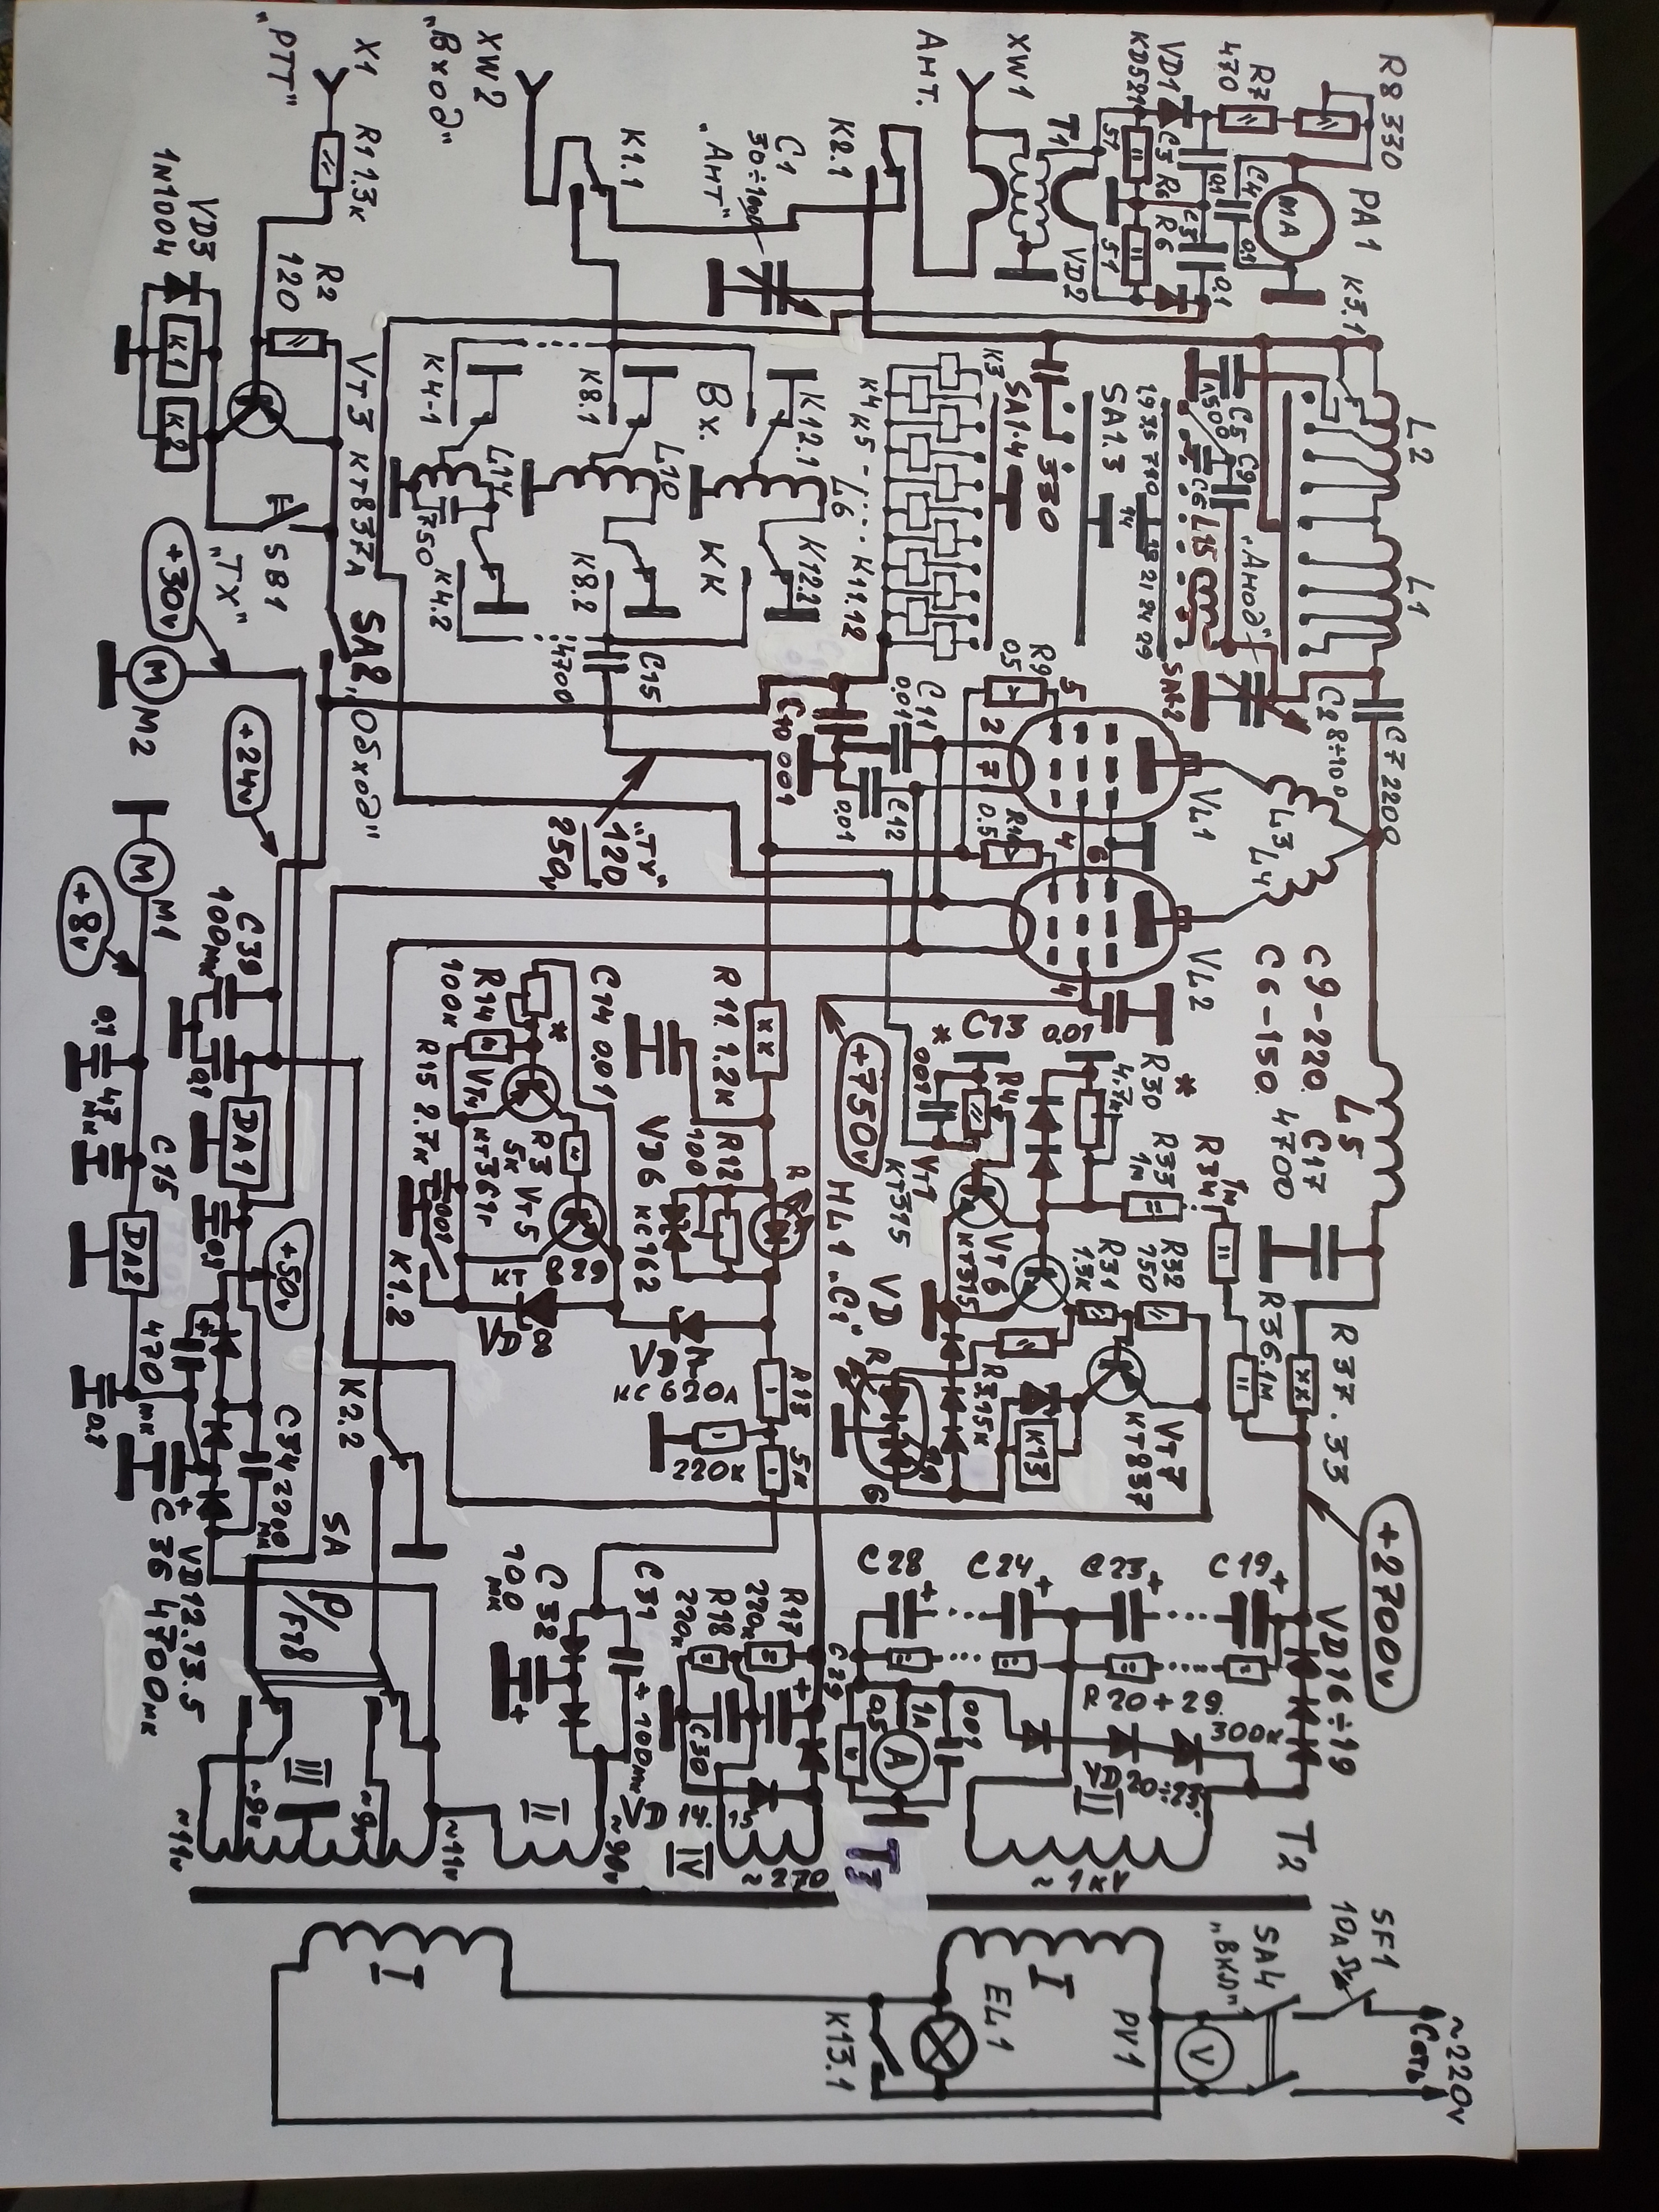 R8 330
PA1
K3.1
L2
L1
C7 2200
C2 8÷100
R7
470
VD1
КД521
mA
C4
0,1
C3
0,1
R6
51
51
0.1
VD2
T1
XW1
Ант.
K2.1
C1
30÷1000
"Ант"
K1.1
XW2
"Вход"
X1
"РТТ"
R1 1.3к
R2
120
VD3
1N1004
K1
K2
VT3 КТ837А
SB1
"TX"
SA2, "Обход"
+30v
M
M2
+24v
M
M1
+8v
C5
1500
C9
C6
L15
"Анод"
1,9 3,5 7 10 14 18 21 24 29
SA1.3
SA1-4
330
K3
K4 K5 - K11.12
K12.1
L6
K12.2
Вх.
КК
K8.1
L10
K8.2
K4-1
L14
750
K4.2
C15
4700
C10 0.01
C11
0.01
C12
0.01
R9
0.5
5
2
7
0.5
4
6
4
VL1
VL2
L3
L4
"TX"
120
250v
C9-220.
C6-150.
C17
4700
L5
C13 0.01
R30
4.7к
R33
1м
R34
1м
R32
750
R31
1.3к
R36.1м
R37.33
+2700v
+750v
VT1
КТ315
VT6
КТ315
VT7
КТ837
K13
HL1 "Ci"
VD
R G
R11 1.2к
R12
100
VD6 КС162
КС620А
R13
5к
220к
C14 0.01
R14
100к
VT4
КТ361г
R3
5к
VT5
R15 2.7к
0.01
K1.2
K2.2
C39
100мк
0.1
DA1
0.1
+50v
0.1
47
мк
C15
DA2
470
мк
0.1
C34 2200
мк
VD12.13.5
C36 4700мк
SA
P/FT8
C28
C24
C23
C19
VD16÷19
R20÷29.
300к
VD20÷23.
C29
0,5
1А
A
0.01
R17
220к
R18
270к
C30
C31
100мк
C32
100
мк
VD 14.15
T2
T3
~1кV
III
~270
IV
~90v
II
~11v
~9v
III
~9v
~11v
SF1
10А
~220v
Сеть
SA4
"Вкл"
V
PV1
EL1
I
I
K13.1